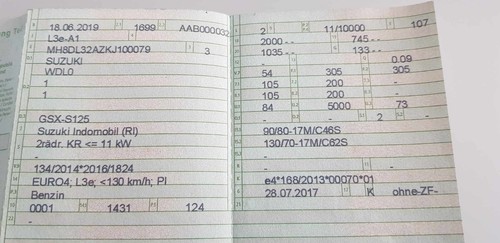 18.06.2019 1699 AAB000032
L3e-A1
MH8DL32AZKJ100079 3
SUZUKI
WDL0
1
1
GSX-S125
Suzuki Indomobil (RI)
2rädr. KR <= 11 kW
-
134/2014*2016/1824
EURO4; L3e; <130 km/h; PI
Benzin
0001 1431 124
-
2 11/10000 107
2000 - - 745 - -
1035 - - 133 - -
- 0.09
54 305 305
105 200 -
105 200 -
84 5000 73
- - - 2 -
90/80-17M/C46S
130/70-17M/C62S
-
- - -
e4*168/2013*00070*01
28.07.2017 K ohne-ZF-